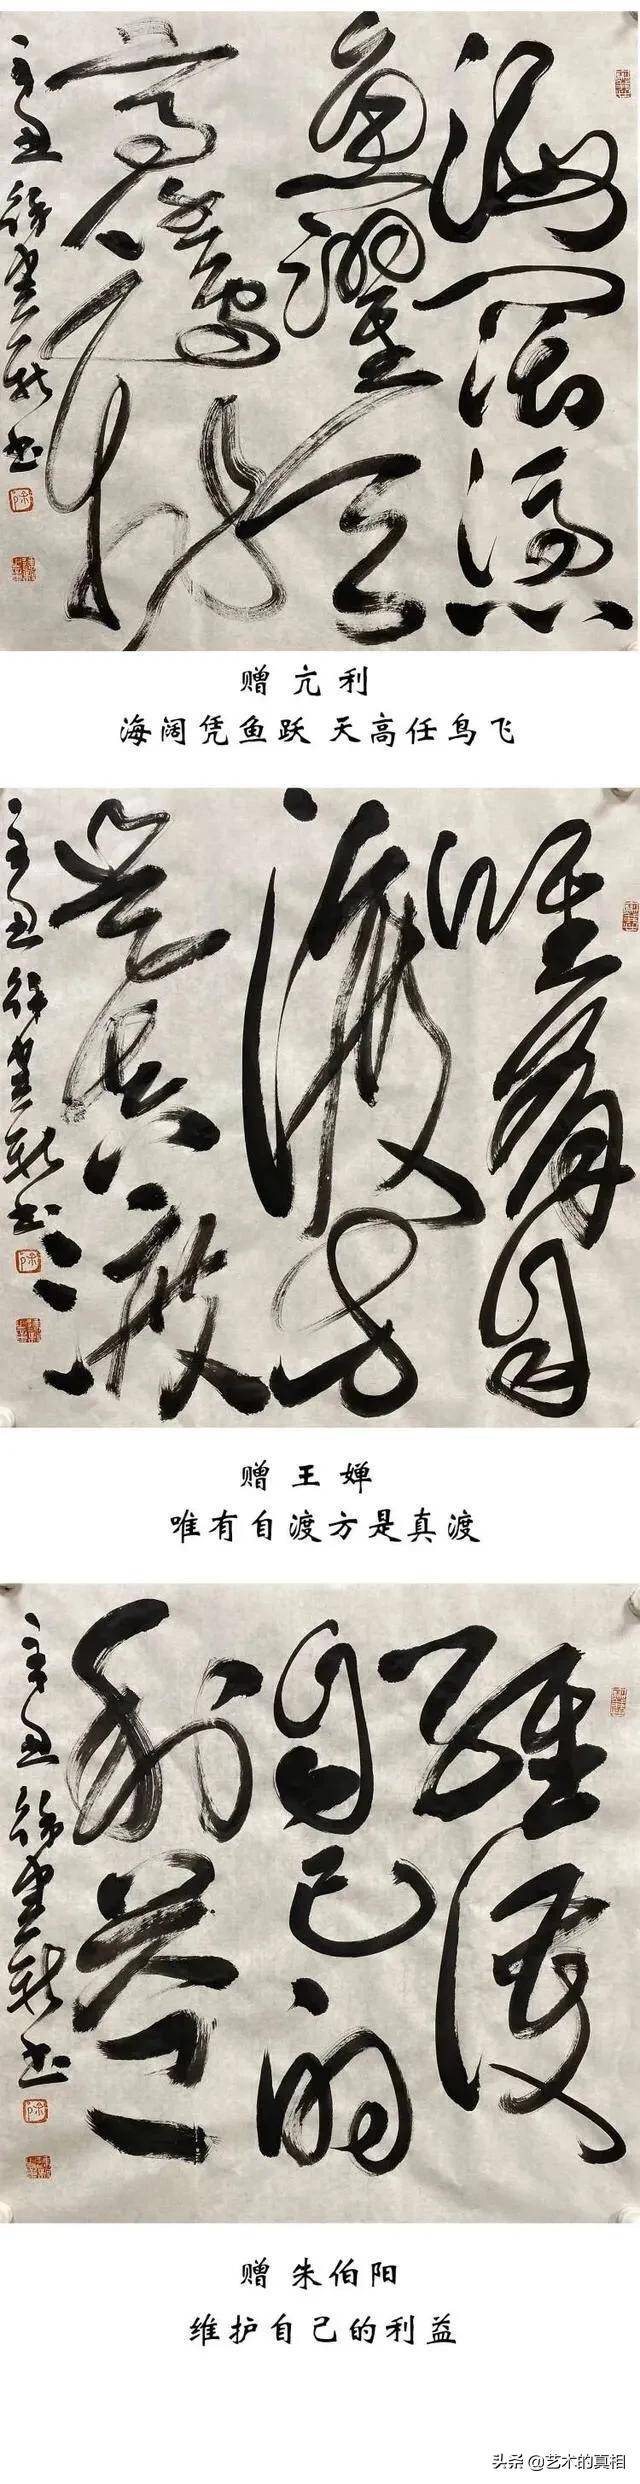 海闊憑
魚躍天
高任鳥飛
辛丑 徐
赠 亢利
海阔凭鱼跃 天高任鸟飞
唯有自
渡方
是真渡
辛丑 徐
赠 王婵
唯有自渡方是真渡
維護
自己的
利益
辛丑 徐
赠 朱伯阳
维护自己的利益
头条 @艺术的真相